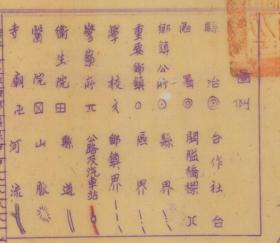 圖例
縣治 合作社
區署 關隘橋樑
鄉鎮公所 縣界
重要鄉鎮 區界
學校 文 鄉鎮界
警察所 公路及汽車站
衛生院 縣道
醫院 山脈
寺廟 卍 河流